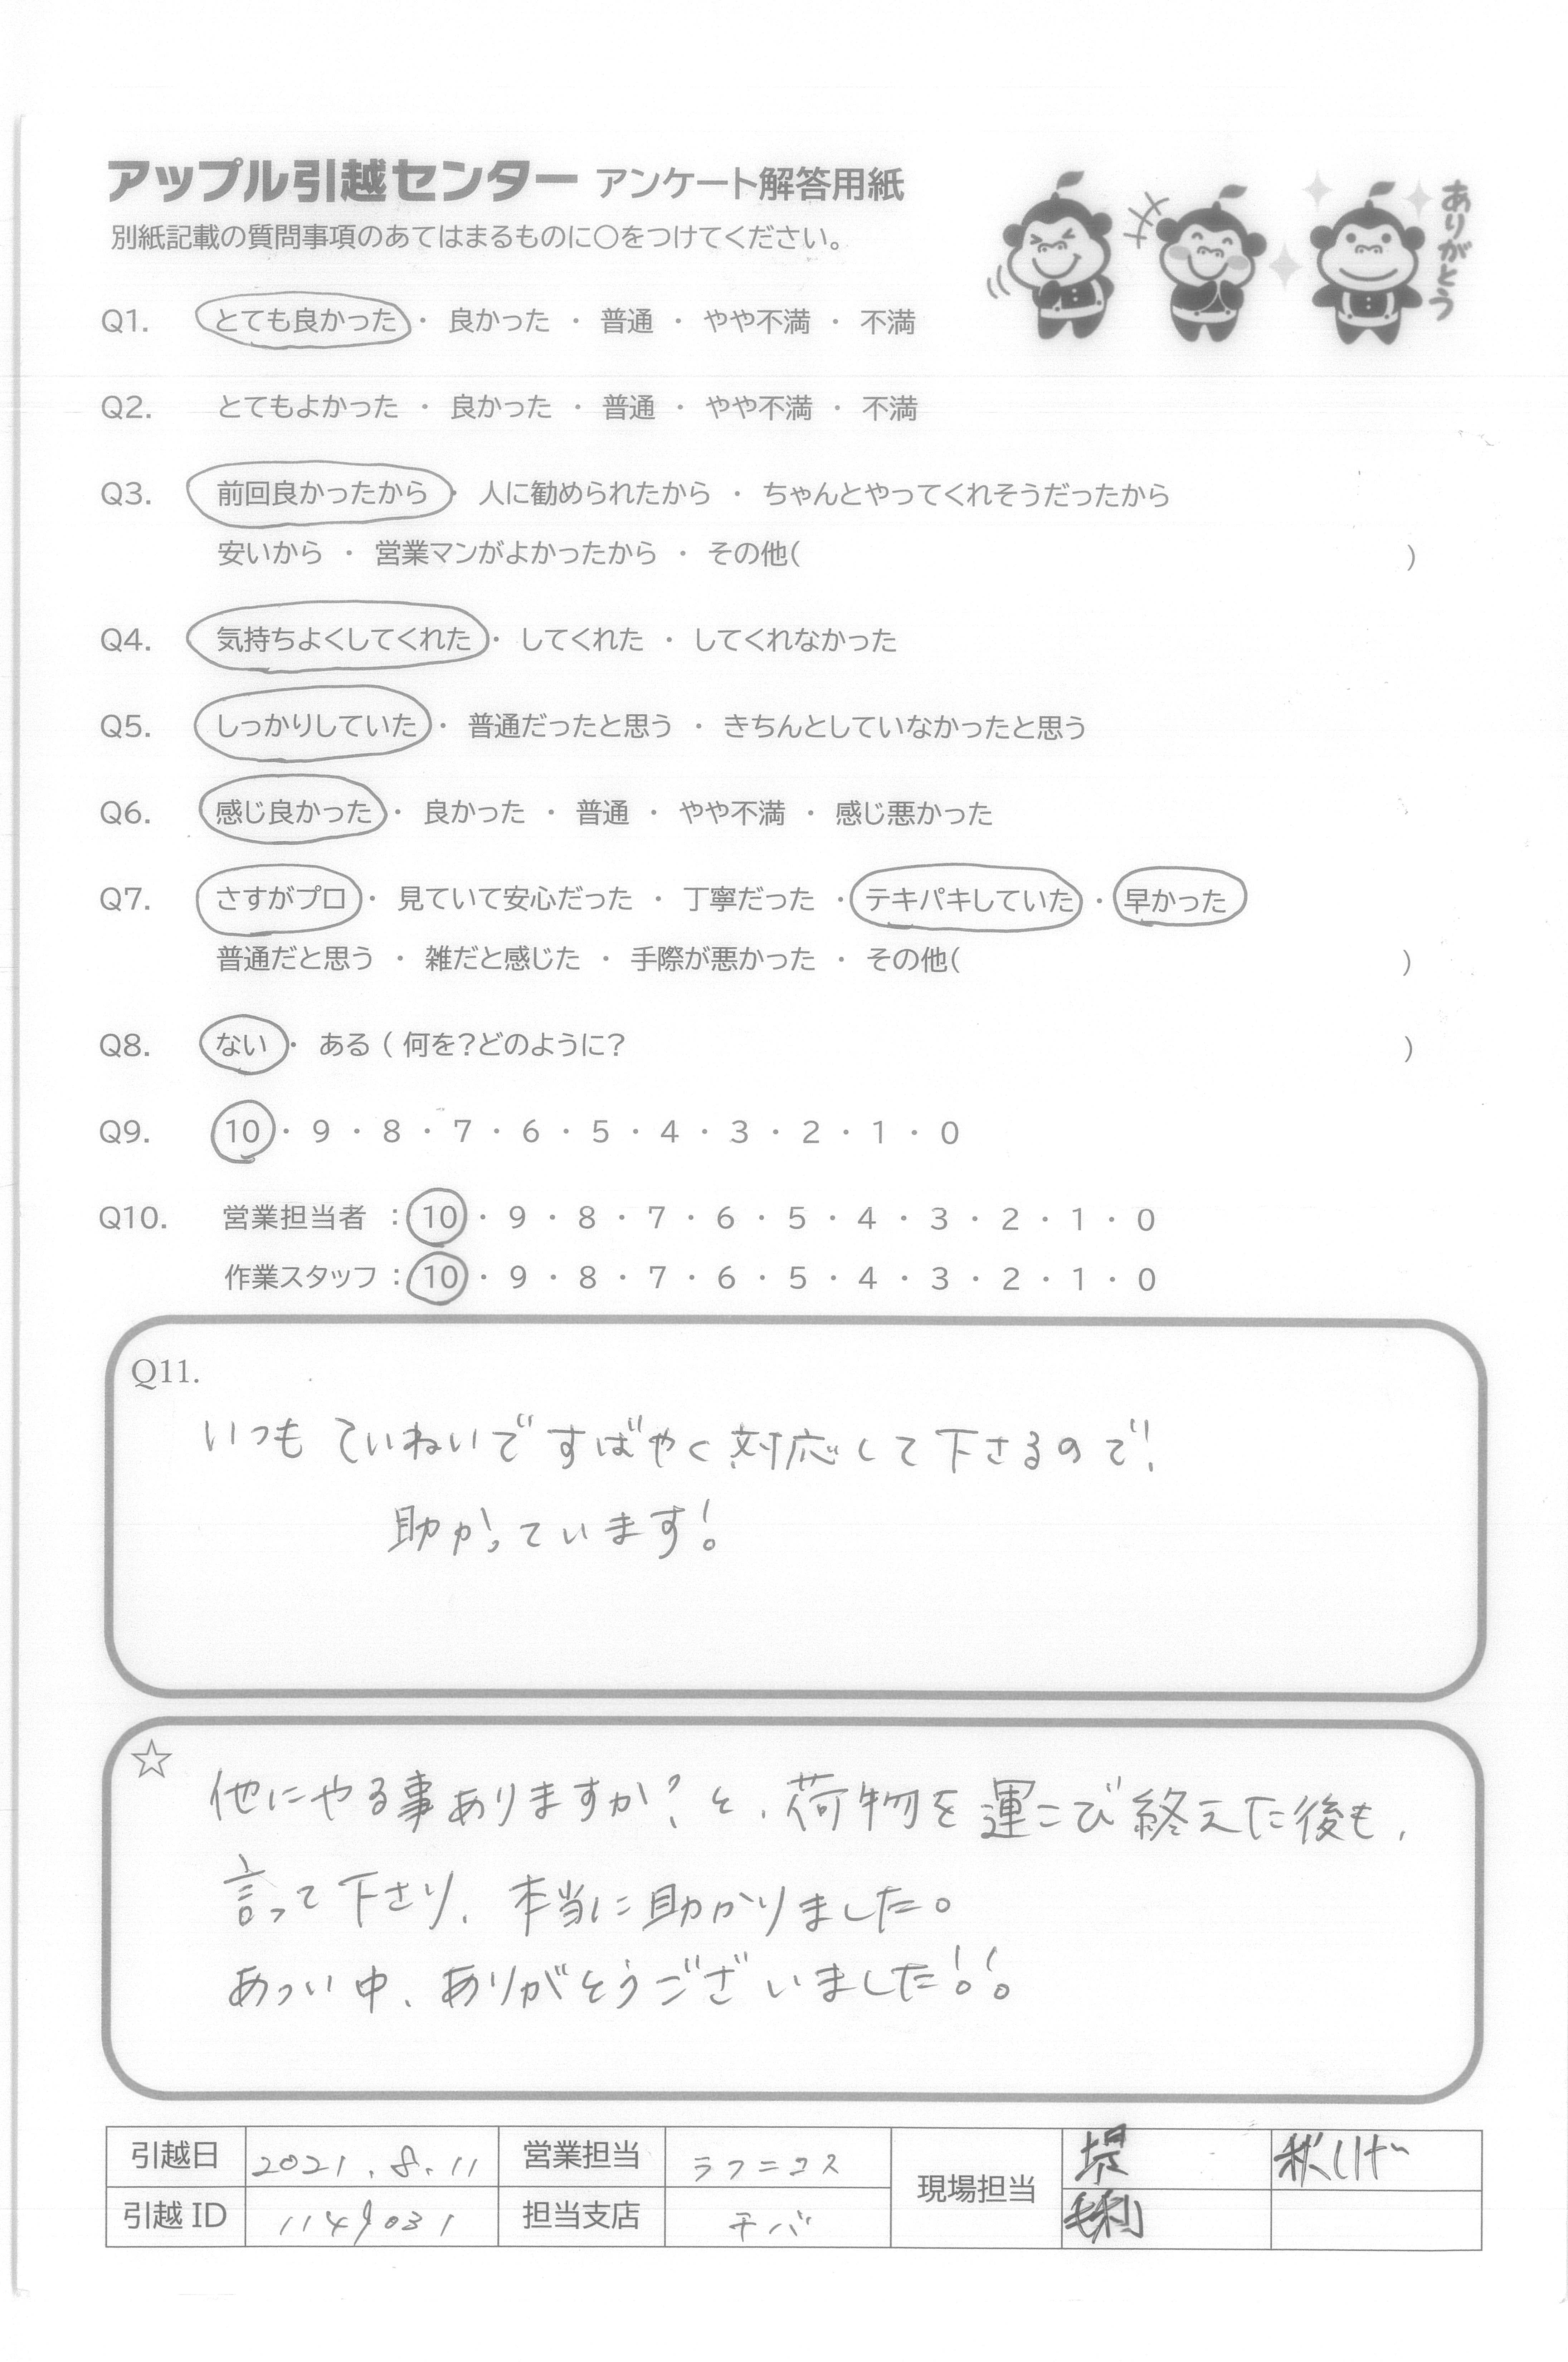 アップル引越センター アンケート解答用紙
別紙記載の質問事項のあてはまるものに○をつけてください。
ありがとう
Q1. とても良かった ・ 良かった ・ 普通 ・ やや不満 ・ 不満
Q2. とてもよかった ・ 良かった ・ 普通 ・ やや不満 ・ 不満
Q3. 前回良かったから ・ 人に勧められたから ・ ちゃんとやってくれそうだったから
安いから ・ 営業マンがよかったから ・ その他( )
Q4. 気持ちよくしてくれた ・ してくれた ・ してくれなかった
Q5. しっかりしていた ・ 普通だったと思う ・ きちんとしていなかったと思う
Q6. 感じ良かった ・ 良かった ・ 普通 ・ やや不満 ・ 感じ悪かった
Q7. さすがプロ ・ 見ていて安心だった ・ 丁寧だった ・ テキパキしていた ・ 早かった
普通だと思う ・ 雑だと感じた ・ 手際が悪かった ・ その他( )
Q8. ない ・ ある ( 何を?どのように? )
Q9. 10 ・ 9 ・ 8 ・ 7 ・ 6 ・ 5 ・ 4 ・ 3 ・ 2 ・ 1 ・ 0
Q10. 営業担当者 : 10 ・ 9 ・ 8 ・ 7 ・ 6 ・ 5 ・ 4 ・ 3 ・ 2 ・ 1 ・ 0
作業スタッフ : 10 ・ 9 ・ 8 ・ 7 ・ 6 ・ 5 ・ 4 ・ 3 ・ 2 ・ 1 ・ 0
Q11.
いつも ていねいで すばやく 対応して下さるので、
助かっています!
☆ 他にやる事ありますか?と、荷物を運こび終えた後も、
言って下さり、本当に助かりました。
あつい中、ありがとうございました!!
引越日 2021.8.11 営業担当 現場担当 堤
引越 ID 1149031 担当支店 チバ 毛利